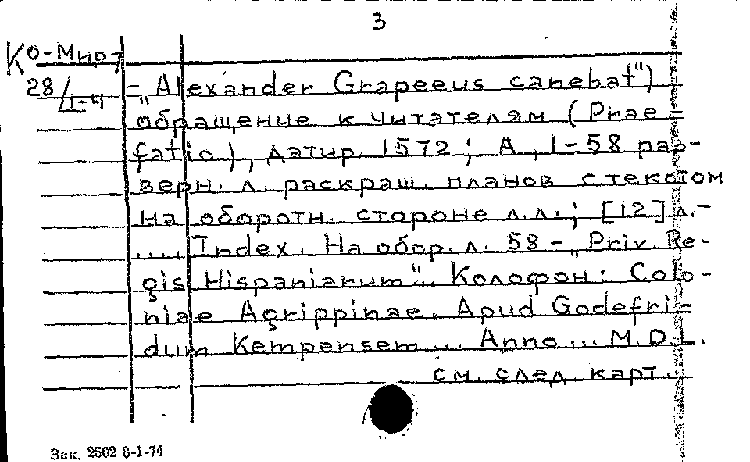 3
Ко-Мир
28/I-4
- „Alexander Grapeeus canebat“)
обращение к читателям (Prae-
fatio), датир. 1572; A, 1-58 раз-
верн. л. раскраш. планов с текстом
на оборотн. стороне л.л.; [12] л.-
.... Index. На обор. л. 58 - „Priv. Re-
gis Hispaniarum“. Колофон: Colo-
niae Agrippinae. Apud Godefri-
dum Kempensem... Anno... M.D.L.
см. след. карт.
Зак. 2502 8-1-74